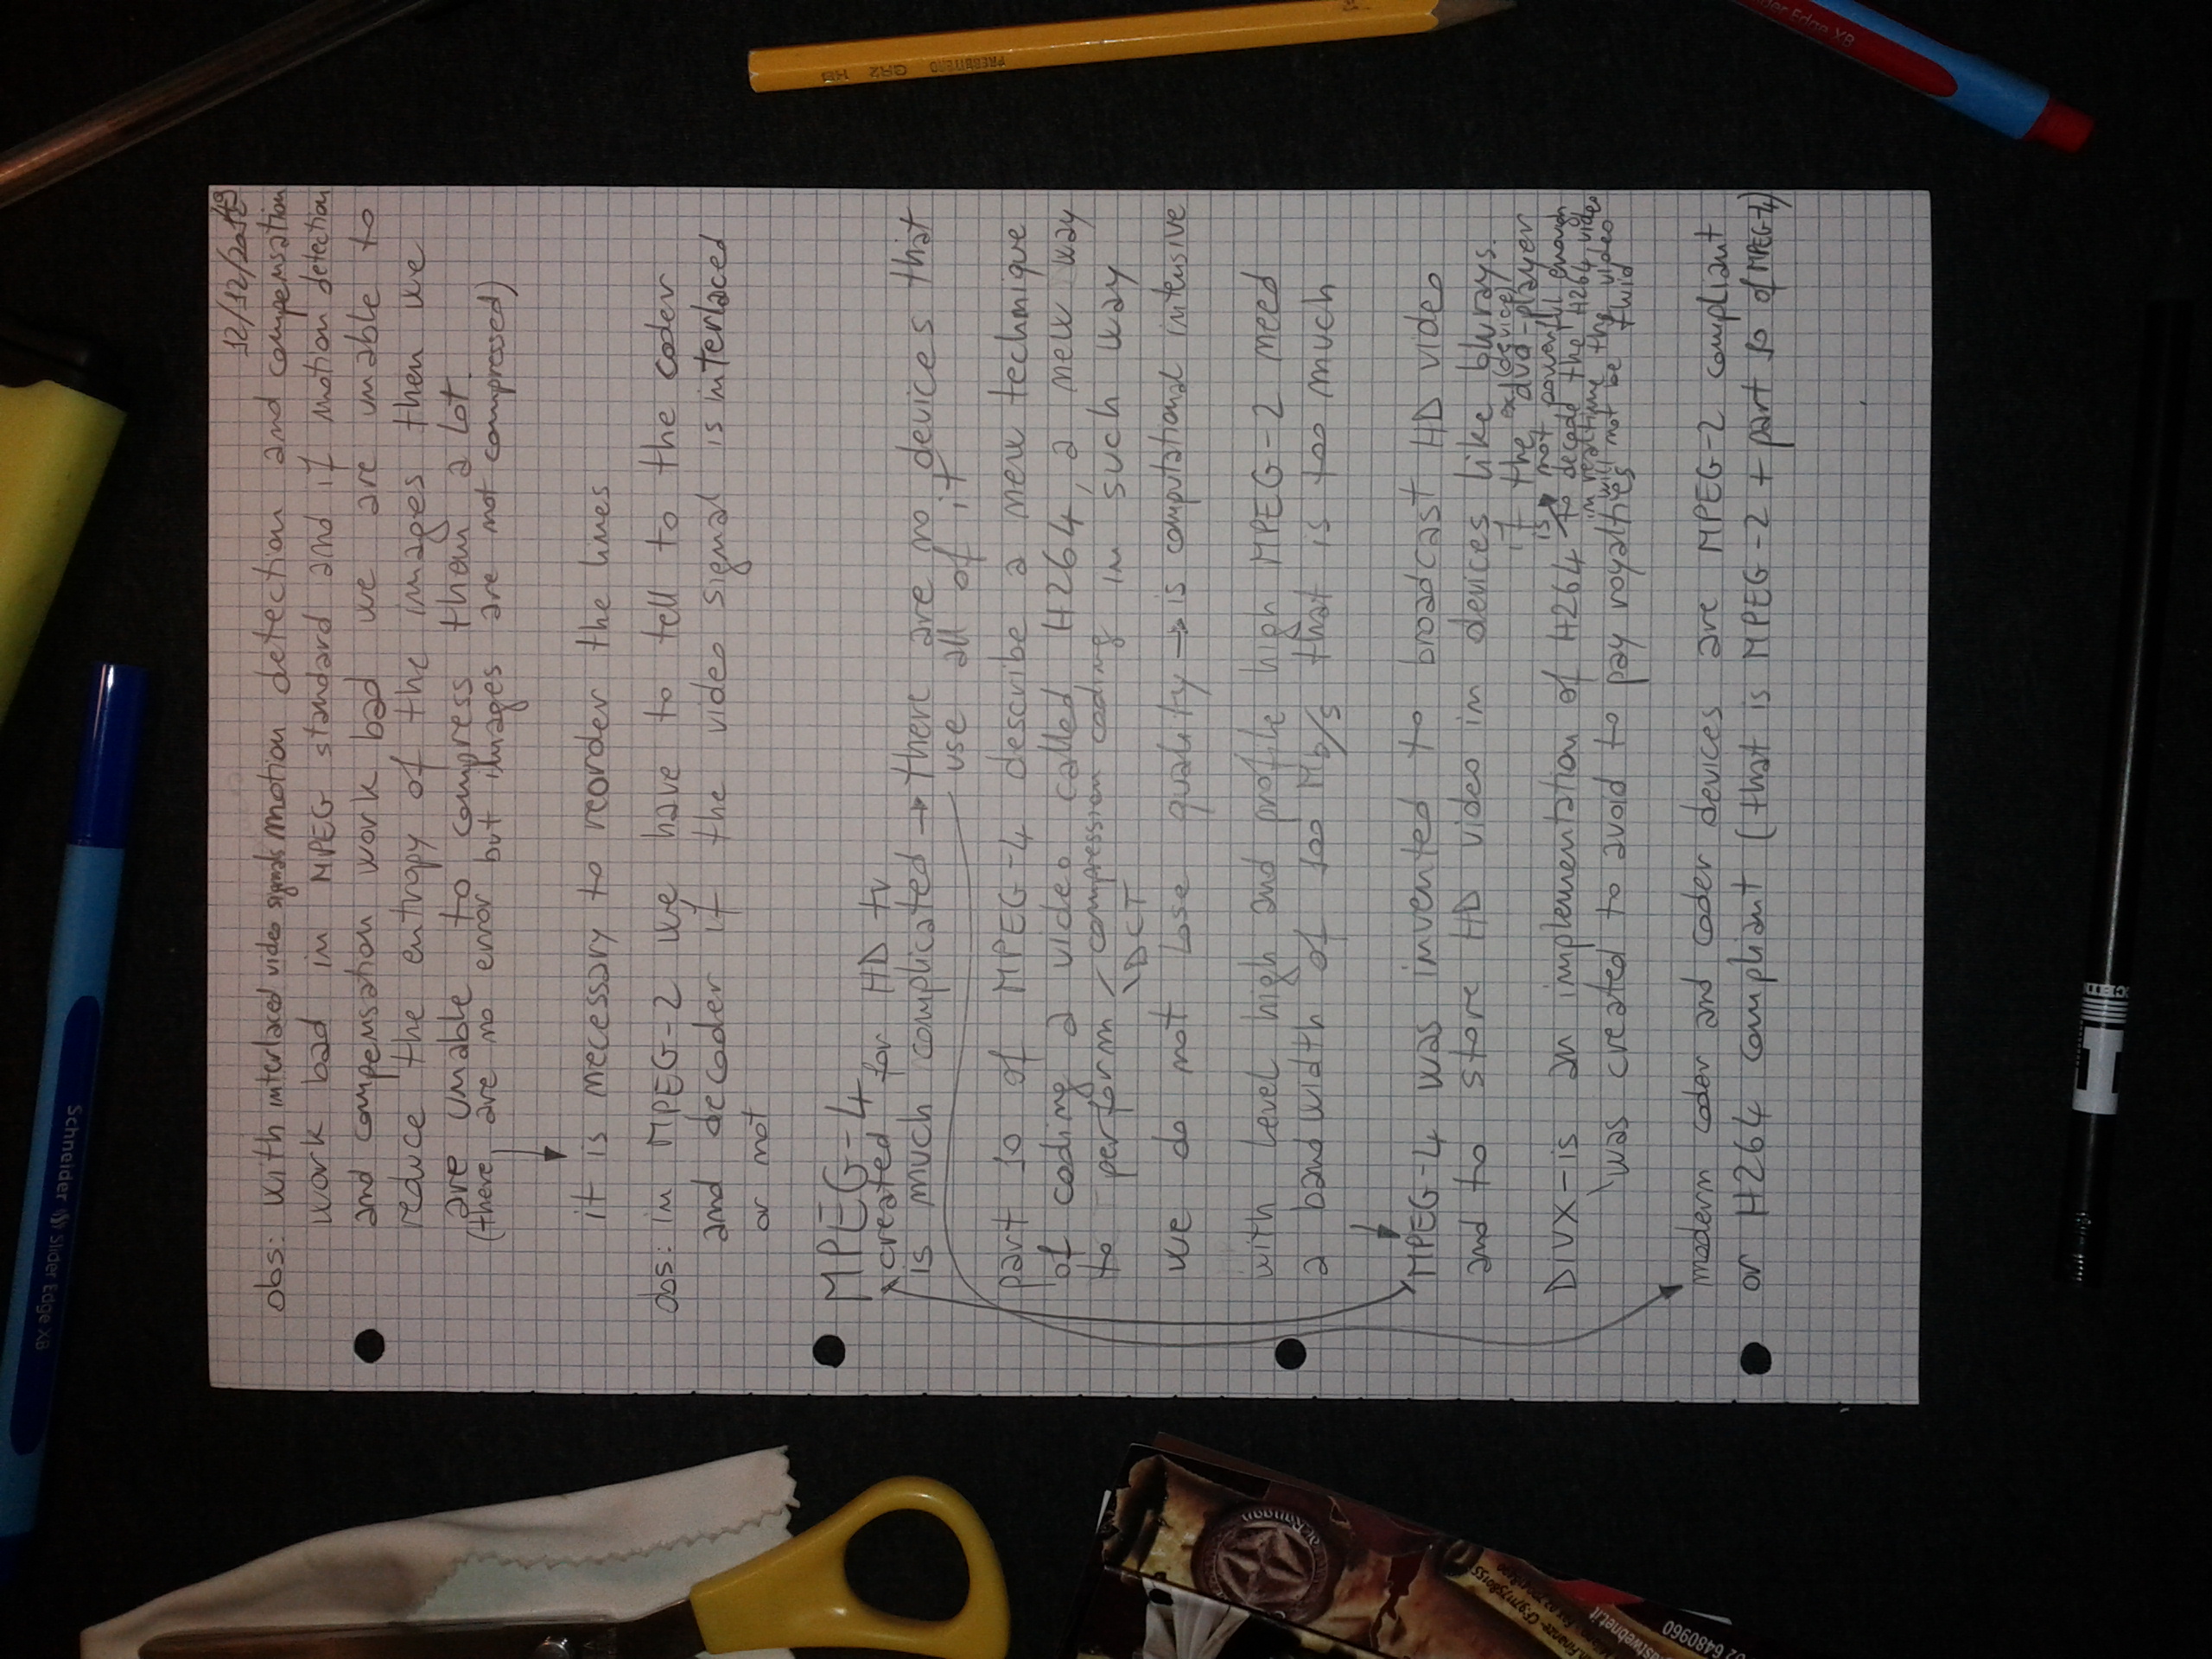 12/12/2019
obs: with interlaced video signals motion detection and compensation
work bad in MPEG standard and if motion detection
and compensation work bad we are unable to
reduce the entropy of the images then we
are unable to compress them a lot.
(there are no error but images are not compressed)
it is necessary to reorder the lines
obs: in MPEG-2 we have to tell to the coder
and decoder if the video signal is interlaced
or not
MPEG-4
created for HD tv
is much complicated → there are no devices that
use all of it
part 10 of MPEG-4 describe a new technique
of coding a video called H264, a new way
to perform compression coding in such way
DCT
we do not lose quality → is computational intensive
with level high and profile high MPEG-2 need
a bandwidth of 100 Mb/s that is too much
MPEG-4 was invented to broadcast HD video
and to store HD video in devices like blurays.
if the ex(device) dvd-player
is not powerfull enough
DIVX - is an implementation of H264 to decode the H264 video
in realtime the video
will not be fluid
was created to avoid to pay royalties
modern coder and coder devices are MPEG-2 compliant
or H264 compliant (that is MPEG-2 + part 10 of MPEG-4)
Schneider Slider Edge XB
PRESBITERO GR2 HB
der Edge XB
02 6480960
stwebnet.it